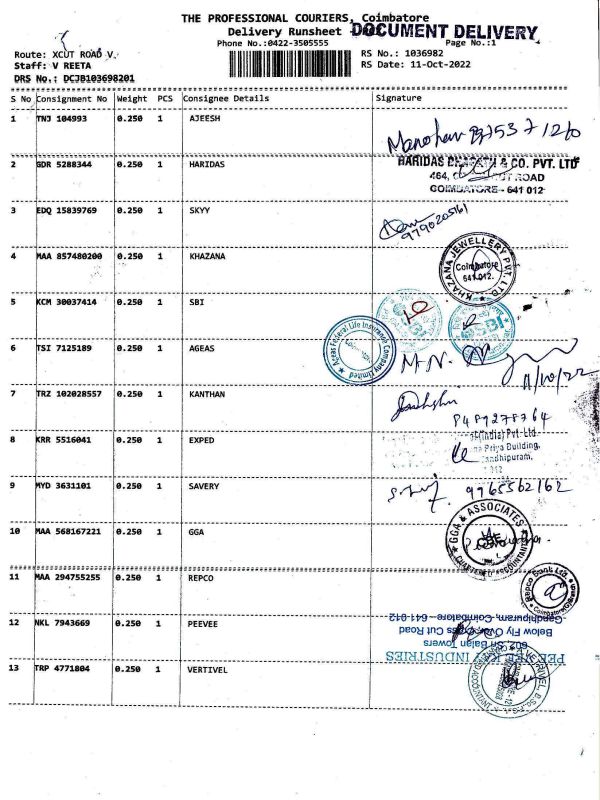 THE PROFESSIONAL COURIERS, Coimbatore
Delivery Runsheet -
DOCUMENT DELIVERY
Phone No.:0422-3505555
Page No.:1
Route: XCUT ROAD V
RS No.: 1036982
Staff: V REETA
RS Date: 11-Oct-2022
DRS No.: DCJB103698201
S No Consignment No Weight PCS Consignee Details Signature
1 TNJ 104993 0.250 1 AJEESH
2 GDR 5288344 0.250 1 HARIDAS
HARIDAS & CO. PVT. LTD
464, ROAD
COIMBATORE - 641 012
3 EDQ 15839769 0.250 1 SKYY
9790205161
4 MAA 857480200 0.250 1 KHAZANA
KHAZANA JEWELLERY PVT. LTD
Coimbatore
641 012.
5 KCM 30037414 0.250 1 SBI
SBI
SBI
6 TSI 7125189 0.250 1 AGEAS
Ageas Federal Life Insurance Company Limited
11/10/22
7 TRZ 102028557 0.250 1 KANTHAN
8489278764
8 KRR 5516041 0.250 1 EXPED
(India) Pvt. Ltd
Priya Building,
Gandhipuram,
9 MYD 3631101 0.250 1 SAVERY
9765562162
10 MAA 568167221 0.250 1 GGA
GGA & ASSOCIATES
CBE
CHARTERED ACCOUNTANTS
11 MAA 294755255 0.250 1 REPCO
Repco Bank Ltd.
Coimbatore
12 NKL 7943669 0.250 1 PEEVEE
INDUSTRIES
Balan Towers
Below Fly Over, Cross Cut Road
Gandhipuram, Coimbatore - 641 012
13 TRP 4771804 0.250 1 VERTIVEL